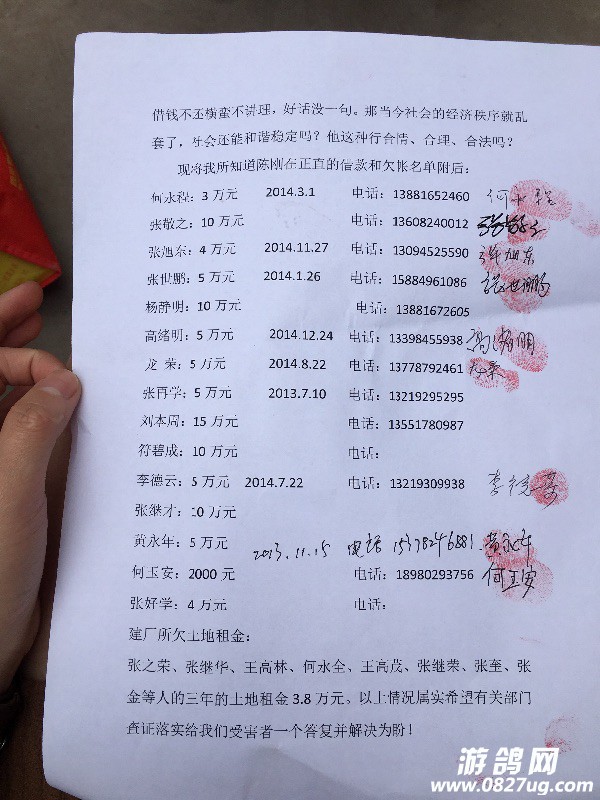 借钱不还横蛮不讲理，好话没一句。那当今社会的经济秩序就乱
套了，社会还能和谐稳定吗？他这种行合情、合理、合法吗？
现将我所知道陈刚在正直的借款和欠帐名单附后：
何永程：3 万元 2014.3.1 电话：13881652460 何永程
张敬之：10 万元 电话：13608240012
张旭东：4 万元 2014.11.27 电话：13094525590 张旭东
张世鹏：5 万元 2014.1.26 电话：15884961086 张世鹏
杨静明：10 万元 电话：13881672605
高绪明：5 万元 2014.12.24 电话：13398455938 高绪明
龙 荣：5 万元 2014.8.22 电话：13778792461 龙荣
张再学：5 万元 2013.7.10 电话：13219295295
刘本周：15 万元 电话：13551780987
符碧成：10 万元 电话：
李德云：5 万元 2014.7.22 电话：13219309938 李德云
张继才：10 万元
黄永年：5 万元 2013.11.15 电话 15378246881 黄永年
何玉安：2000 元 电话：18980293756 何玉安
张好学：4 万元 电话：
建厂所欠土地租金：
张之荣、张继华、王高林、何水全、王高茂、张继荣、张奎、张
金等人的三年的土地租金 3.8 万元，以上情况属实希望有关部门
查证落实给我们受害者一个答复并解决为盼！
游鸽网
www.0827ug.com